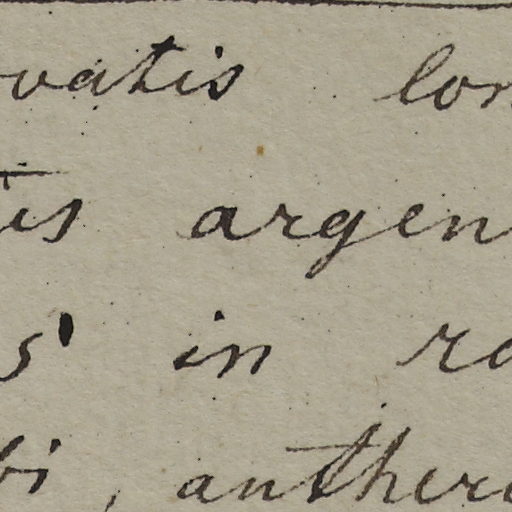 vatis lon
tis argen
s' in ra
bi, anthera